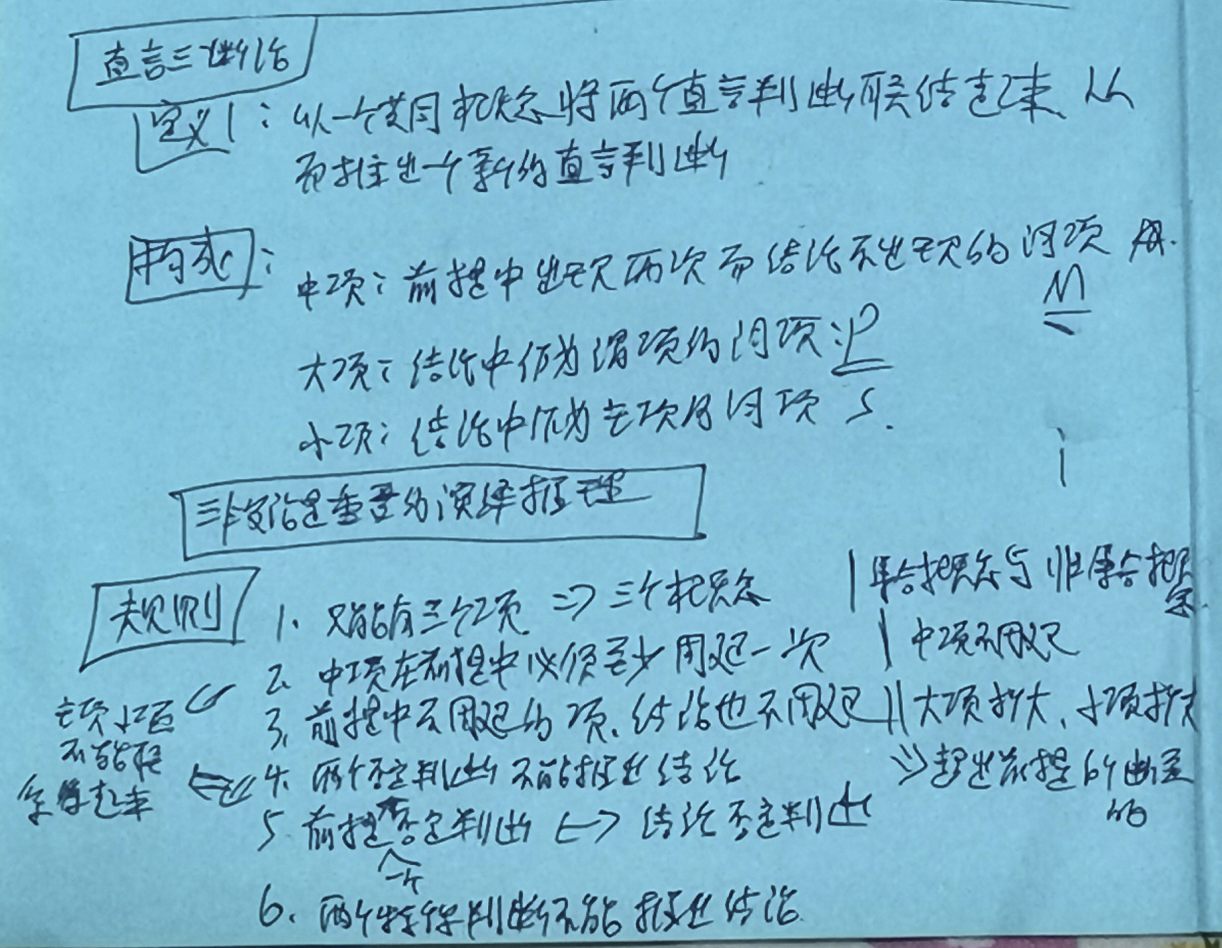 直言三断论
定义:以一个共同概念将两个直言判断联结起来,从
而推出一个新的直言判断
构成:
中项:前提中出现两次而结论不出现的词项 用.
M
大项:结论中作为谓项的词项:P
小项:结论中作为主项的词项 S.
三段论是重要的演绎推理
规则
1. 只能有三个项 => 三个概念
集合概念与非集合概念
2. 中项在前提中必须至少周延一次
中项不周延
3. 前提中不周延的项,结论也不周延
大项扩大、小项扩大
=> 超出前提的断定
的
4. 两个否定判断不能推出结论
主项小项
不能
联系起来
5. 前提一个否定判断 <-> 结论否定判断
6. 两个特称判断不能推出结论.